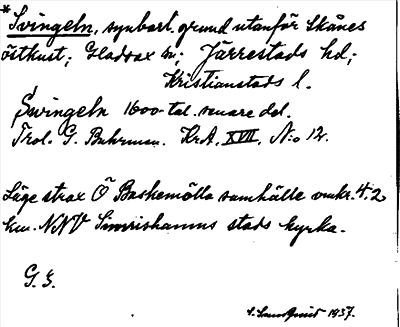 * Svingeln, synbart grund utanför Skånes
östkust; Gladsax sn; Järrestads hd;
Kristianstads l.
Swingeln 1600-tal. senare del.
Trol. G. Buhrman. Kr.A. XVII, N:o 12.
Läge strax Ö Baskemölla samhälle omkr. 4.2
km. NNV Simrishamns stads kyrka.
G. 1937.